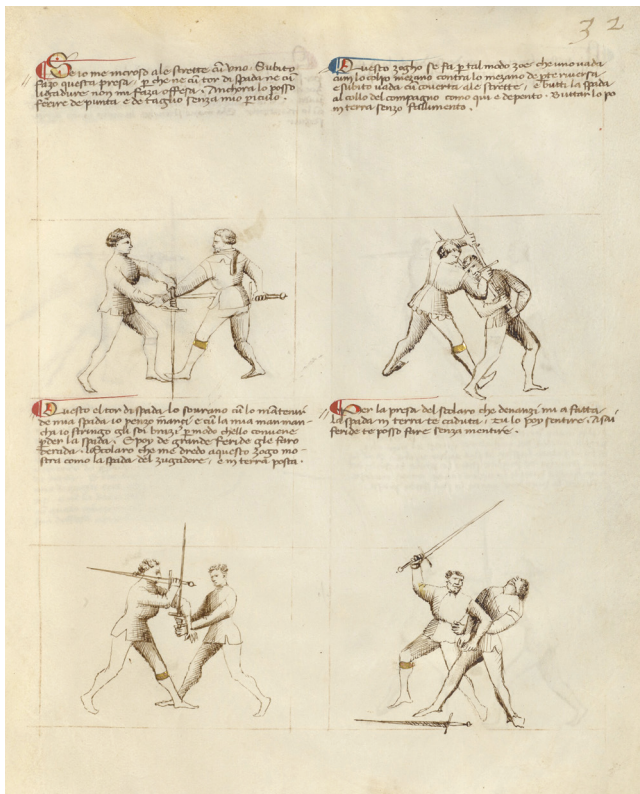 32
Se io me incroso ale strette cū uno. Subito
fazo questa presa, p che ne cū tor di spada ne cū
ligadure non mi faza offesa. Anchora lo posso
ferire de punta e de taglio senza mio piculo.
Questo zogho se fa p tal modo zoe che uno vada
cum lo colpo mezano contra lo mezano de pte riversa
e subito vada cū coverta ale strette, e butti la spada
al collo del compagno como qui e depento. Buttar lo po
in terra senzo fallimento.
Questo el tor di spada lo sovrano cū lo mātenir
de mia spada io penzo inanci e cū la mia man man-
cha io stringo gli soi brazi p modo chello convene
pder la spada. E poy de grande feride gle farò
derada. lo scolaro che me dredo aquesto zogo mo-
stra como la spada del zugadore, e in terra posta.
Per la presa del scolaro che denanzi mi a fatta,
la spada in terra te caduta, tu lo poy sentire. Asai
feride te posso fare senza mentire.